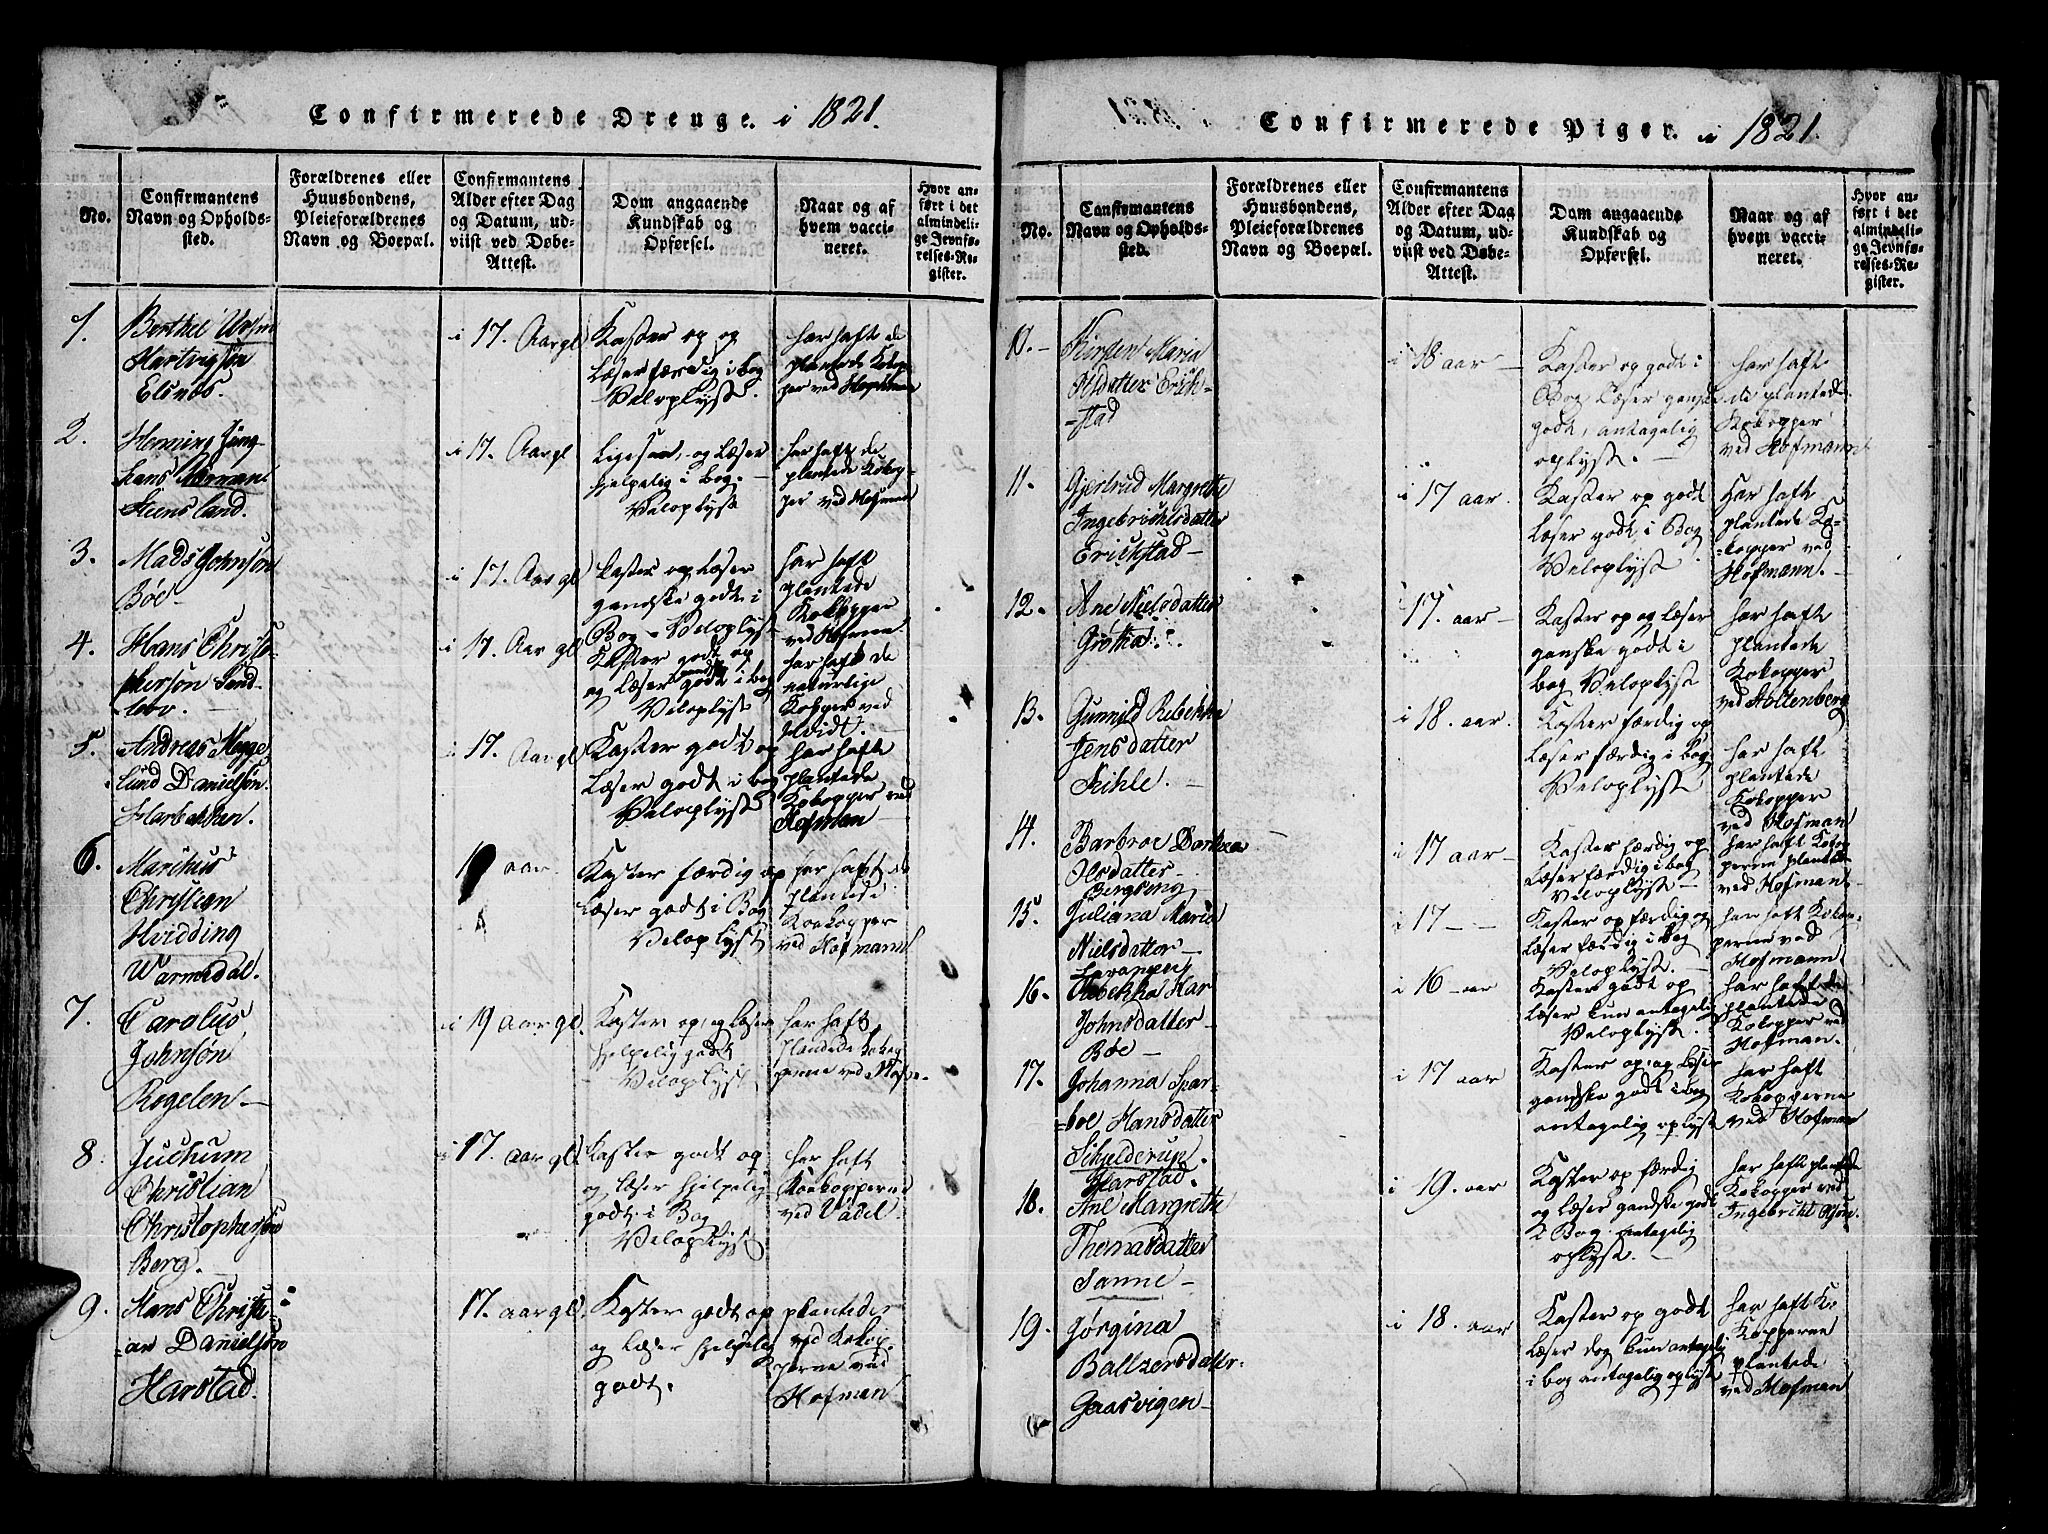 Confirmerede Drenge. i 1821.
No.
Confirmantens
Navn og Opholds-
sted.
Forældrenes eller
Huusbondens,
Pleieforældrenes
Navn og Boepæl.
Confirmantens
Alder efter Dag
og Datum, ud-
viist ved Døbe-
Attest.
Dom angaaende
Kundskab og
Opførsel.
Naar og af
hvem vacci-
neret.
Hvor an-
ført i det
almindeli-
ge Jevnfø-
relses-Re-
gister.
1.
Berthel
Hartvigsøn
Elsnæs.
i 17. Aar gl
Kaster op og
læser færdig i bog
Veloplyst.
har hafte de
plantede Kokop
per ved
2.
Heming Jung-
hans Norman
Steensland.
i 17. Aar gl
ligesaa, og læser
hjelpelig i bog.
Veloplyst
har hafte de
plantede Kokop
per ved Hofman
3.
Mads Johnsøn
Bøe
i 17. Aar gl
kaster op læser
gandske godt i
Bog - Veloplyst
har haft
plantede
Kokopper
ved Hofman
4.
Hans Christo-
phersøn Sand-
torv.
i 17. Aar gl
Kaster godt op
og læser godt i bog
Veloplyst
har haft de
naturlige
Kokper ved
Hvidt.
5.
Andreas Hegge
lund Danielsøn.
Harbakken.
i 17. Aar gl
Kaster godt op
læser godt i bog
Veloplyst
har hafte
plantede
Kokopper ved
Hofman
6.
Marchus
Christian
Hvidding
Warmedal.
aar.
Kaster færdig op
læser godt i Bog
Veloplyst
har haft de
plantede
Koekopper
ved Hofmann
7.
Carolus
Johnsøn
Rogelen
i 19 Aar gl.
Kaster op, og læser
hjelpelig godt
Veloplyst
har haft
plantede Kokop
perne ved
8.
Juchum
Christian
Christophersøn
Berg.
i 17. aar gl.
kaster godt op
og læser hjelpelig
godt i Bog
Veloplyst
har haft
Koekopperne
ved Vadel
9.
Hans Christi-
an Danielsøn
Harstad.
17. aar gl.
Kaster godt op
og læser hjelpelig
godt.
plantede
ved Kokop
perne ved
Hofman
Confirmerede Piger. i 1821.
No.
Confirmantens
Navn og Opholds-
sted.
Forældrenes eller
Huusbondens,
Pleieforældrenes
Navn og Boepæl.
Confirmantens
Alder efter Dag
og Datum, ud-
viist ved Døbe-
Attest.
Dom angaaende
Kundskab og
Opførsel.
Naar og af
hvem vacci-
neret.
Hvor an-
ført i det
almindeli-
ge Jevnfø-
relses-Re-
gister.
10.
Kirsten Maria
Olsdatter Erich-
stad
i 18 aar
Kaster op godt i
Bog læser ganske
godt, antagelig
oplyst.
har hafte
de plantede
Kokopper
ved Hofmann
11.
Gjertrud Margrethe
Ingebrichtsdatter
Erichstad
i 17 aar.
Kaster op godt
læser godt i Bog
Veloplyst
Har hafte
plantede Ko-
kopper ved
Hofmann.
12.
Ane Nielsdatter
Grøttia
17. aar
Kaster op og læser
ganske godt i
bog Veloplyst
har hafte
plantede
Kokopper
ved Holtenberg
13.
Gunnild Rebekka
Jensdatter
Kihle.
i 18. aar.
Kaster færdig op
læser færdig i bog
Veloplyst
har haft
plantede
Kokopper
ved Hofman
14.
Barbroe Dorthea
Olsdatter
Bergseng
i 17 aar
Kaster færdig op
læser færdig i bog
Veloplyst
har haft Kokop
perne plantede
ved Hofman
15.
Juliana Maria
Nielsdatter
i 17
Kaster op færdig og
læser færdig i bog
Veloplyst.
har haft Kokop-
perne ved
Hofmann
16.
Rebekka Kar
Johnsdatter
Bøe
i 16 aar
Kaster godt op
læser kun antagelig
Veloplyst.
har hafte de
plantede
Kokopper ved
Hofman.
17.
Johanna Spar-
boe Hansdatter
Schjelderup.
Harstad.
i 17 aar
Kaster op, og læser
gandske godt i bog
antagelig oplyst
har haft
Kokopperne
ved Hofman
18.
Ane Margrethe
Thomasdatter
Sanne
i 19. aar
Kaster op færdig
og læser gandske godt
i Bog antagelig
oplyst.
har haft plantede
Kokopper ved
Ingebricht Olsøn.
19.
Jørgina
Baltzersdatter.
Gaasvigen
i 18. aar
Kaster op godt
læser dog kun antagelig
i bog antagelig oplyst
har haft Ko-
kopperne
plantede
ved Hofman